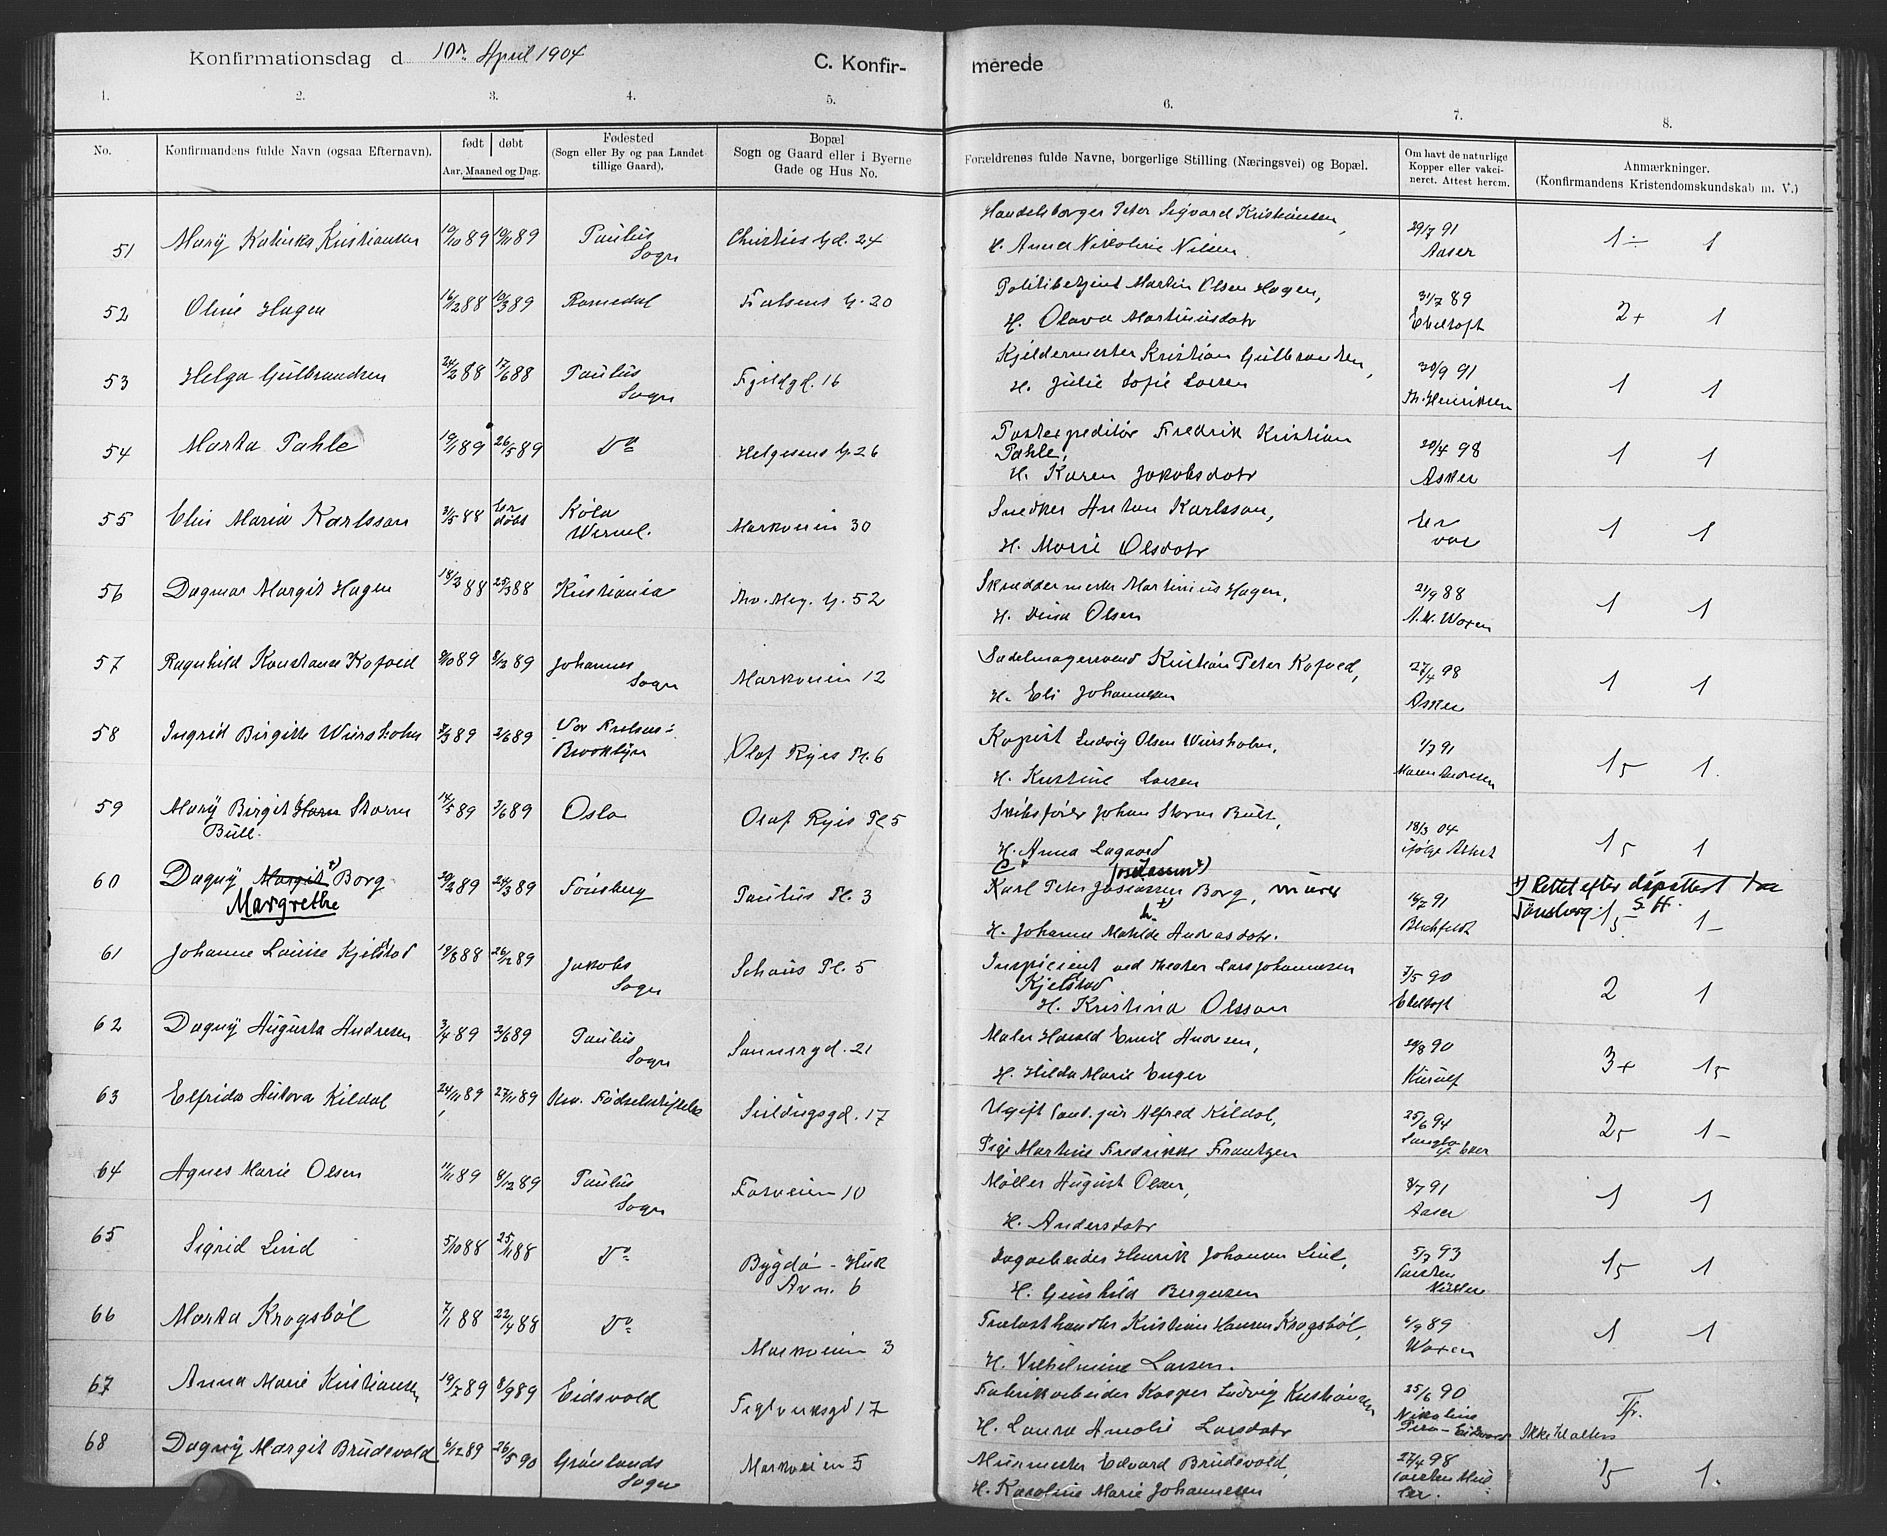 Konfirmationsdag d 10de April 1904
C. Konfir- merede
1. 2. 3. 4. 5. 6. 7. 8.
No.
Konfirmandens fulde Navn (ogsaa Efternavn).
født døbt
Aar, Maaned og Dag.
Fødested
(Sogn eller By og paa Landet
tillige Gaard).
Bopæl
Sogn og Gaard eller i Byerne
Gade og Hus No.
Forældrenes fulde Navne, borgerlige Stilling (Næringsvei) og Bopæl.
Om havt de naturlige
Kopper eller vakci-
neret. Attest herom.
Anmærkninger.
(Konfirmandens Kristendomskundskab m. V.)
Handelsborger Peter Sigvard Kristiansen,
51 Mary Katinka Kristiansen 19/10 89 10/11 89 Paulus Sogn Christies Gd. 24 29/7 91 1 ÷ 1
H. Anna Nikoline Nilsen. Aaser
Politibetjent Martin Olsen Hagen,
52 Oline Hagen 16/12 88 10/3 89 Romedal 20 31/7 89 2+ 1
H. Olava Martinusdatr Ebeltoft
Kjeldermester Kristian Gulbrandsen,
53 Helga Gulbrandsen 24/2 88 17/6 88 Paulus Sogn 16 30/9 91 1 1
H. Julie Sofie Larsen Th. Henriksen
Postexpeditør Fredrik Kristian
54 Marta Pahle 19/1 89 26/5 89 Do Helgesens G. 26 Pahle, 20/4 98 1 1
H. Karen Jakobsdatr Asker
Snedker Anton Karlsson,
55 Elin Maria Karlsson 3/5 88 Er døbt Köla Werml. Markveien 30 Er vac 1 1
H. Marie Olsdatr
Skræddermester Martinius Hagen,
56 Dagmar Margit Hagen 18/3 88 25/3 88 Kristiania Thv. Mey. G. 52 21/9 88 1 1
H. Olsen
57 Ragnhild Konstanse Kofoed 9/10 89 8/12 89 Johannes Sogn Markveien 12 Sadelmagersvend Kristian Peter Kofoed, 27/4 98 1 1
H. Eli Johannesen Asker
58 Ingrid Birgitte Wiersholm 7/3 89 2/6 89 Vor Frelsers: Brooklyn Olaf Ryes Pl. 6 Kopist Ludvig Olsen Wiersholm, 1/7 91 15 1.
H. Kristine Larsen Maren Andresen
59 Mary Birgit Storm 14/5 89 3/6 89 Oslo Olaf Ryes Pl 5 Skibsfører Johan Storm Bull, 18/3 04 15 1
Bull. H. Anna Lagaard ifølge Attest
60 Dagny Margit Borg 20/2 89 24/3 89 Tønsberg Paulus Pl. 3 Karl Peter Josiassen Borg, murer 16/7 91 Rettet efter dåpattest fra
Margrethe Tønsberg. 15 1-
H. Johanne Matilde Andreasdatr. Blichfeldt
61 Johanne Louise Kjelstad 19/8 88 26/12 89 Jakobs Sogn Schous Pl. 5 Inspicient ved theater Lars Johannesen
Kjelstad 7/5 90 2 1
H. Kristina Olsson Ebeltoft
62 Dagny Augusta Andresen 3/4 89 2/6 89 Paulus Sogn Sannergd. 21 Maler Harald Emil Andresen, 20/8 90 3+ 15
H. Hilda Marie Enger Kierulf
63 Elfrida Antora Kildal 24/11 89 27/11 89 Univ. Fødselsstiftelse Seildugsgd. 17 Ugift Cand. jur Alfred Kildal, 25/6 94 25 1-
Pige Martine Fredrikke Frantzen
64 Agnes Marie Olsen 11/11 89 8/12 89 Paulus Sogn Fosveien 10 Møller August Olsen, 8/7 91 1 1
H. Andersdatr Aaser
65 Sigrid Lind 5/10 88 25/11 88 Do Bygdø - Huk Avn. 6 Dagarbeider Henrik Johansen Lind, 5/7 93 15 1
H. Gunhild Bergersen Carsten Müller
66 Marta Krogsböl 7/1 88 22/4 88 Do Markveien 3 Frokosthandler Kristian Hansen Krogsböl, 6/9 89 1 1
H. Vilhelmine Larsen. Woxen
67 Anna Marie Kristiansen 19/7 89 8/9 89 Eidsvold Teglverksgd 17 Fabrikarbeider Kasper Ludvig Kristiansen 25/6 90 Tfr.
H. Laura Amalie Larsdatr Nikoline Eidsvold Ikke
68 Dagny Margit Brudevold 6/12 89 26/5 90 Grønlands Sogn Markveien 5 Murmester Edvard Brudevold, 27/4 98 15 1.
H. Karoline Marie Johannesen Carsten Mül-
ler.